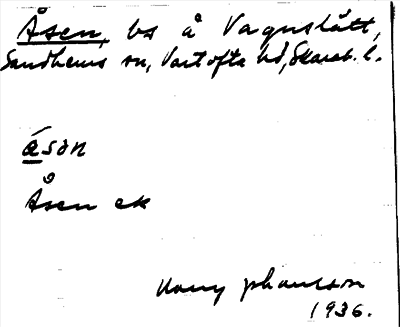 Åsen, bs å Vagnslätt,
Sandhems sn, Vartofta hd, Skarab. l.
åsən
Åsen ek
Harry Johansson
1936.